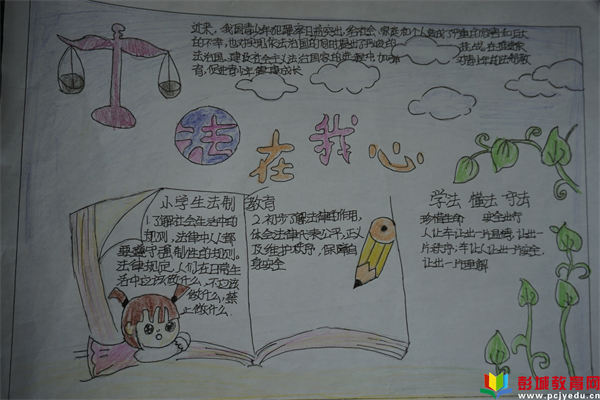 近来，我国青少年犯罪率日益突出，给社会、家庭和个人造成了严重的危害和巨大
的不幸，也对实现依法治国的
法治国，建设社会主义法治国家的进程中，加强
对青少年的法制教
育，促进青少年健康成长
法在我心
小学生法制教育
1.了解社会生活中的
规则，法律中人人都
要遵守强制性的规则。
法律规定，人们在日常生
活中应该做什么，不应该
做什么，禁
止做什么
2.初步了解法律的作用，
体会法律代表公平，正义
及维护秩序，保障自
身安全
学法 懂法 守法
珍惜生命 安全出行
人让车让出一片温暖，让出一
片秩序，车让人让出一片安全，
让出一片理解
彭城教育网
www.pcjyedu.cn